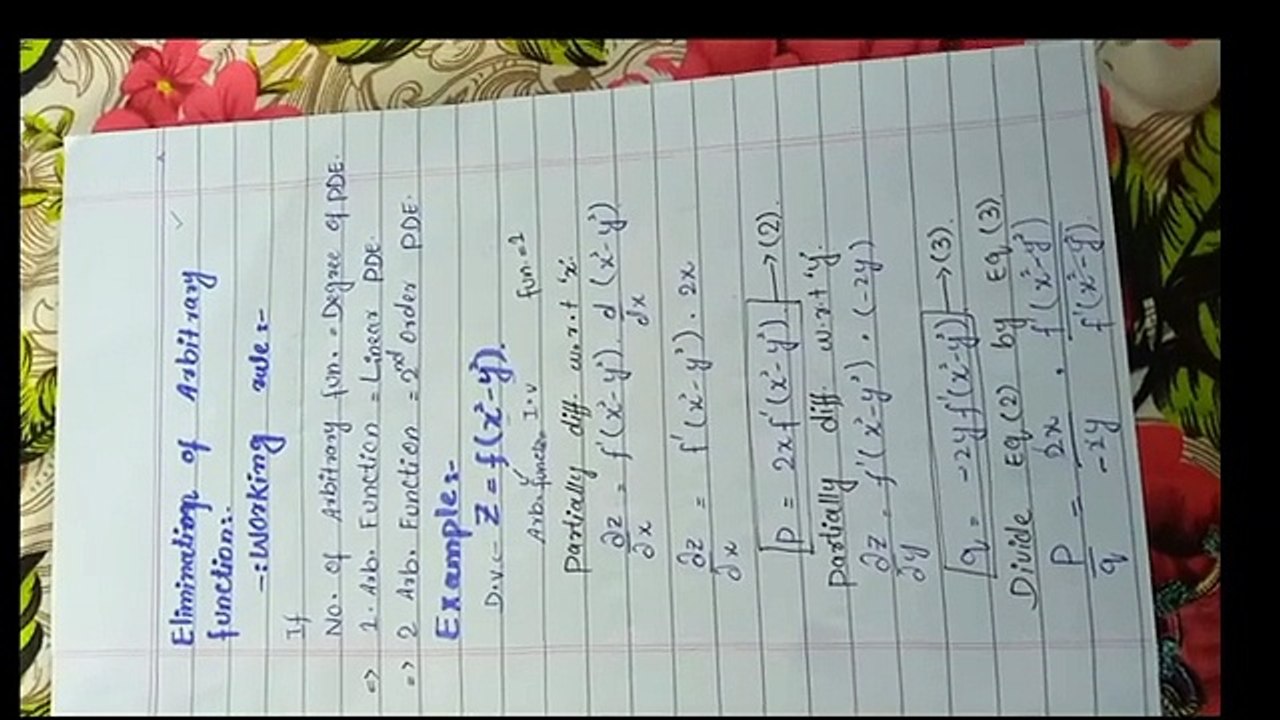 Elimination of Arbitrary
function:-
-:Working rule:-
If
No. of Arbitrary fun. = Degree of PDE.
=> 1. Arb. Function = Linear PDE.
=> 2 Arb. Function = 2nd order PDE.
Example:-
D.v. <- Z = f(x²-y²).
Arb. function I.v fun. = 1
Partially diff. w.r.t 'x'.
∂z/∂x = f'(x²-y²). d/dx (x²-y²)
∂z/∂x = f'(x²-y²). 2x
P = 2x f'(x²-y²). → (2).
Partially diff. w.r.t 'y'.
∂z/∂y = f'(x²-y²). (-2y)
q = -2y f'(x²-y²) → (3).
Divide Eq.(2) by Eq.(3)
P/q = 2x/-2y . f'(x²-y²)/f'(x²-y²).